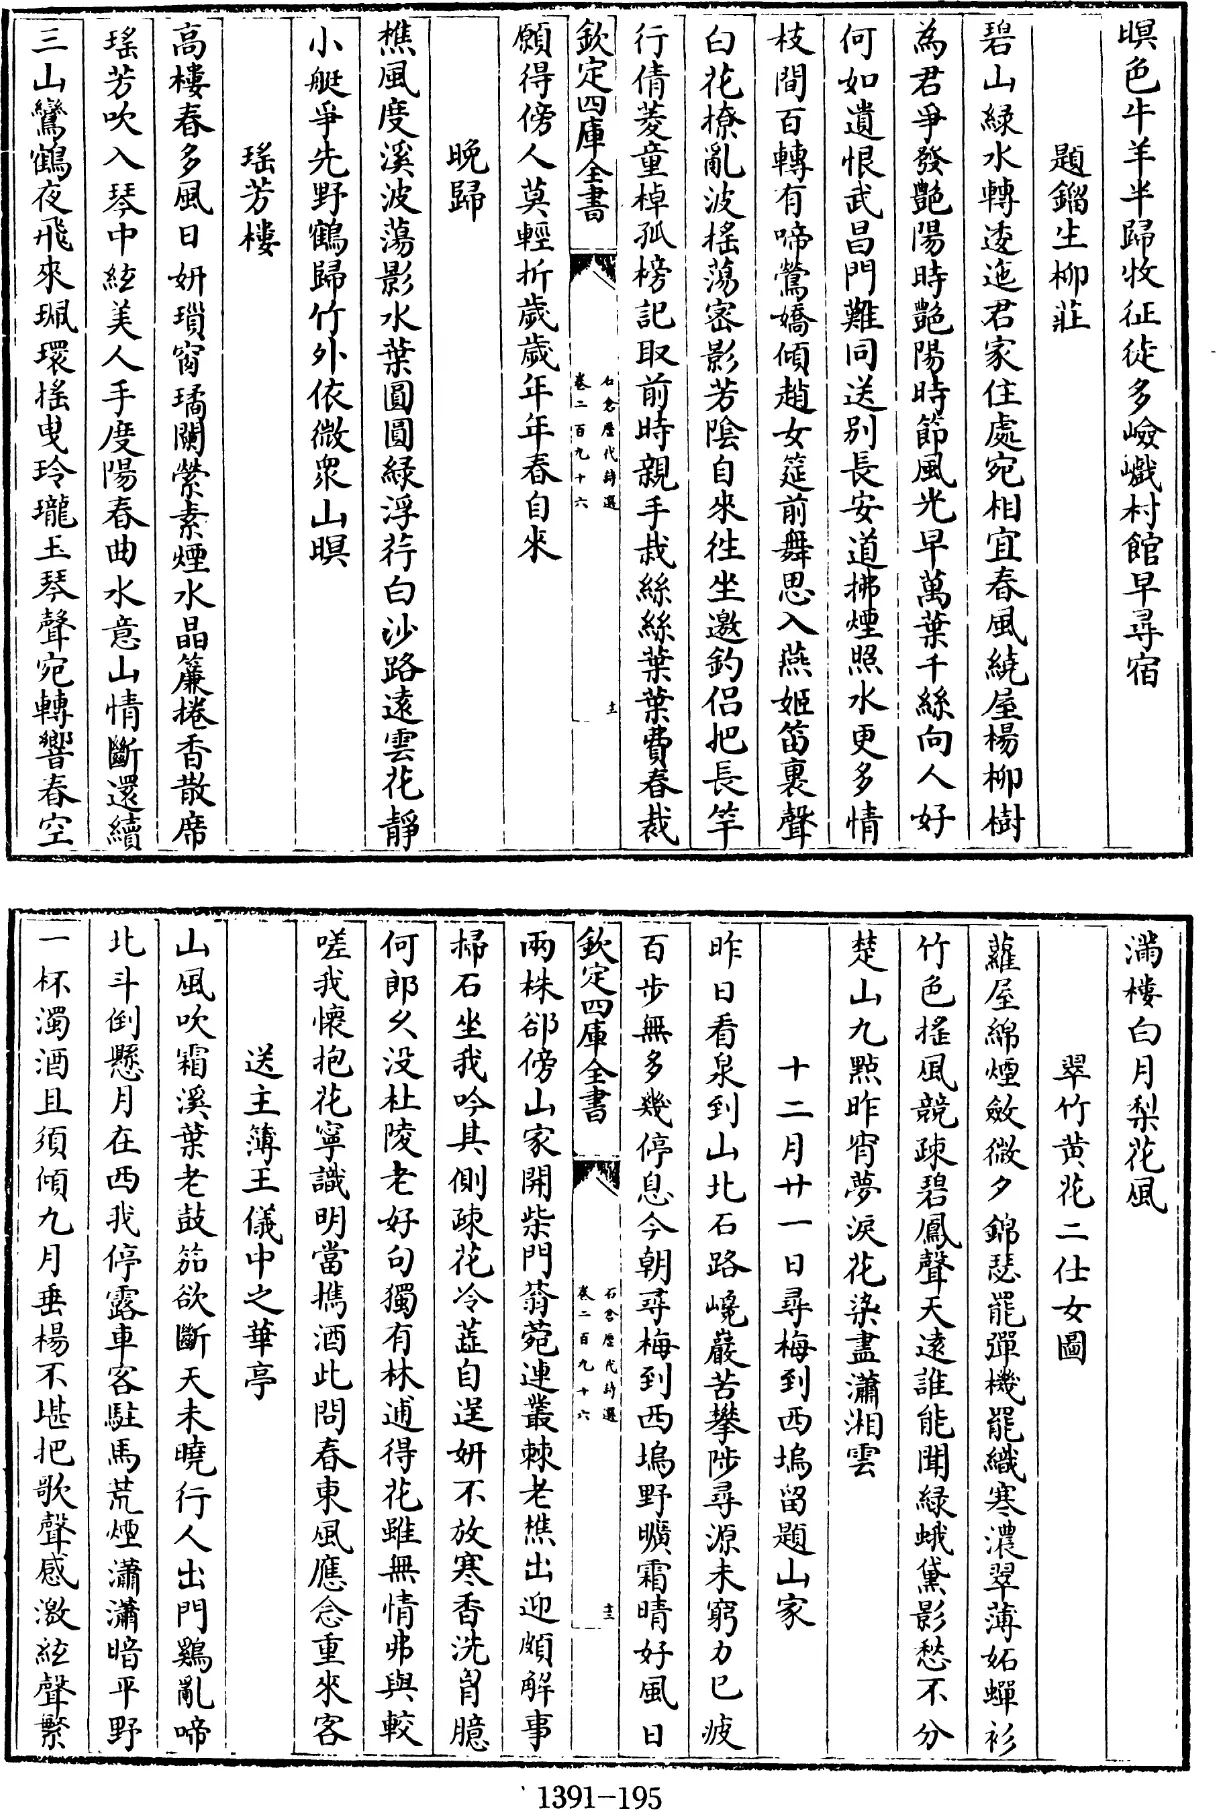 暝色牛羊半歸牧征徒多嶮巇村館早尋宿
題鎦生柳莊
碧山緑水轉逶迤君家住處宛相宜春風繞屋楊柳樹
為君爭發艷陽時艷陽時節風光早萬葉千絲向人好
何如遺恨武昌門難同送别長安道拂煙照水更多情
枝間百轉有啼鶯嬌傾趙女筵前舞思入燕姬笛裏聲
白花撩亂波搖蕩宻影芳陰自來往坐邀釣侣把長竿
行倩菱童棹孤榜記取前時親手栽絲絲葉葉費春裁
欽定四庫全書
石倉歴代詩選
卷二百九十六
願得傍人莫輕折歲歲年年春自來
晚歸
樵風度溪波蕩影水葉圓圓緑浮荇白沙路遠雲花靜
小艇爭先野鶴歸竹外依微衆山暝
瑶芳樓
高樓春多風日妍瑣窗璚闌縈素煙水晶簾捲香散席
瑤芳吹入琴中絃美人手度陽春曲水意山情斷還續
三山鸞鶴夜飛來珮環摇曳玲瓏玉琴聲宛轉響春空
滿樓白月梨花風
翠竹黄花二仕女圖
蘿屋綿煙斂微夕錦瑟罷彈機罷織寒濃翠薄妬蟬衫
竹色搖風競疎碧鳳聲天遠誰能聞緑蛾黛影愁不分
楚山九點昨宵夢淚花染盡瀟湘雲
十二月廿一日尋梅到西塢留題山家
昨日看泉到山北石路巉巖苦攀陟尋源未窮力已疲
百步無多幾停息今朝尋梅到西塢野曠霜晴好風日
欽定四庫全書
石倉歴代詩選
卷二百九十六
兩株郤傍山家開柴門蓊菀連叢棘老樵出迎頗解事
掃石坐我吟其側疎花冷蘂自逞妍不放寒香洗胷臆
何郎久没杜陵老好句獨有林逋得花雖無情弗與較
嗟我懷抱花寧識明當攜酒此問春東風應念重來客
送主簿王儀中之華亭
山風吹霜溪葉老鼓笳欲斷天未曉行人出門鷄亂啼
北斗倒懸月在西我停露車客駐馬荒煙瀟瀟暗平野
一杯濁酒且須傾九月垂楊不堪把歌聲感激絃聲繁
1391-195